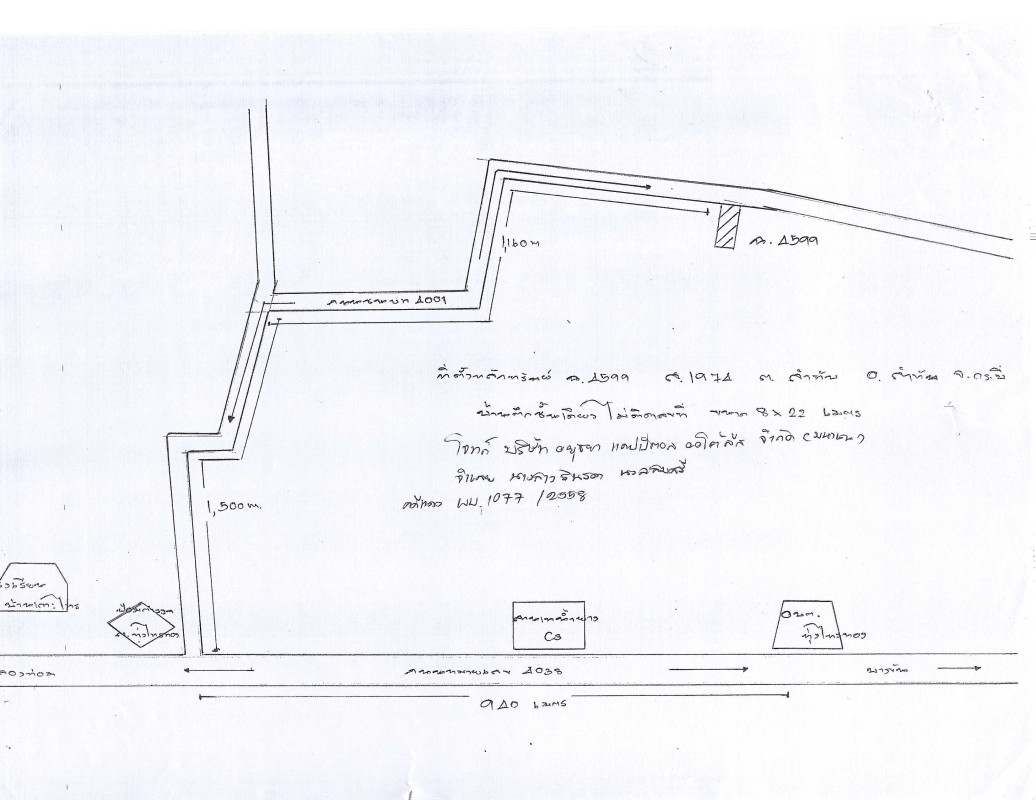 1,160 m
ฉ. 4599
ถนนชนบท 4001
ที่ตั้งหลักทรัพย์ ฉ. 4599 ส. 1974 ต. ลำทับ อ. ลำทับ จ. กระบี่
บ้านตึกชั้นเดียว ไม่ติดเลขที่ ขนาด 8 x 22 เมตร
โจทก์ บริษัท อยุธยา แคปปิตอล ออโต้ ลีส จำกัด (มหาชน)
จำเลย นางสาว
คดีแดง ผบ. 1077 /2558
1,500 m.
โรงเรียน
ป้อมตำรวจ
ต. ทุ่งไทรทอง
C3
อบต.
ทุ่งไทรทอง
คลองท่อม
ถนนทางหลวง 4038
ลำทับ
940 เมตร